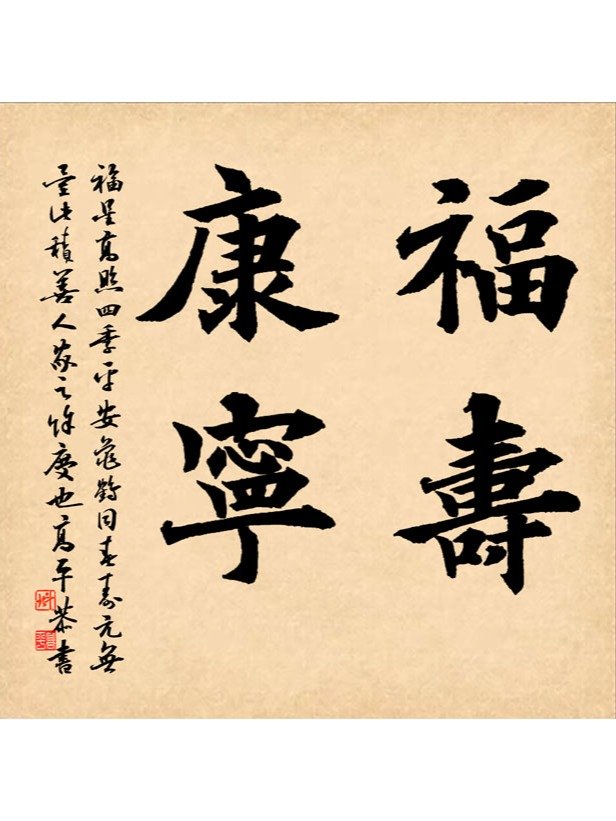 福壽
康寧
福星高照四季平安龜鶴同春壽元無
量此積善人家之餘慶也高平恭書